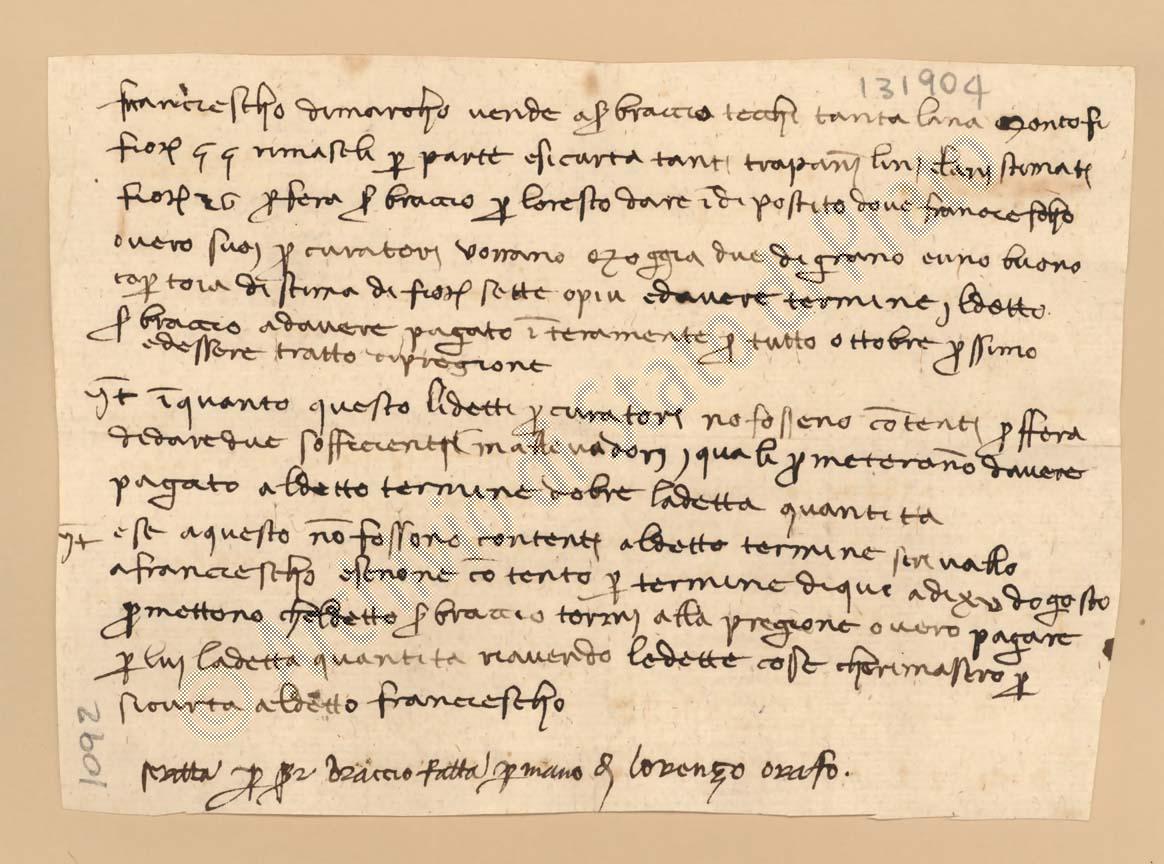 131904
francischo dimarcho vende a s braccio tecchi tanta lana montofi
fior rimaseli p parte e sicurta tanti trapani lini stimati
fior 26 p s braccio p loresto dare i dipostito dove franciescho
overo suoi pcuratori vorrano moggia due di grano buono
di stima di fior sette o piu e davere termine il detto
s braccio adavere pagato interamente p tutto ottobre pssimo
edessere tratto di pregione
it inquanto questo li detti pcuratori no fosseno cōtenti pffera
di dare due soffecienti mallevadori i quali pmeteranno davere
pagato al detto termine dobre la detta quantita
it e se a questo nō fossono contenti al detto termine
a franciescho e se none cōtento p termine di qui a di xv dogosto
pmettono cheldetto s braccio torni alla pregione overo pagare
p lui la detta quantita riavendo le dette cose che rimasero p
sicurta al detto franciescho
scritta p ser braccio fatta p mano di lorenzo orafo.
1092
© Archivio di Stato di Prato